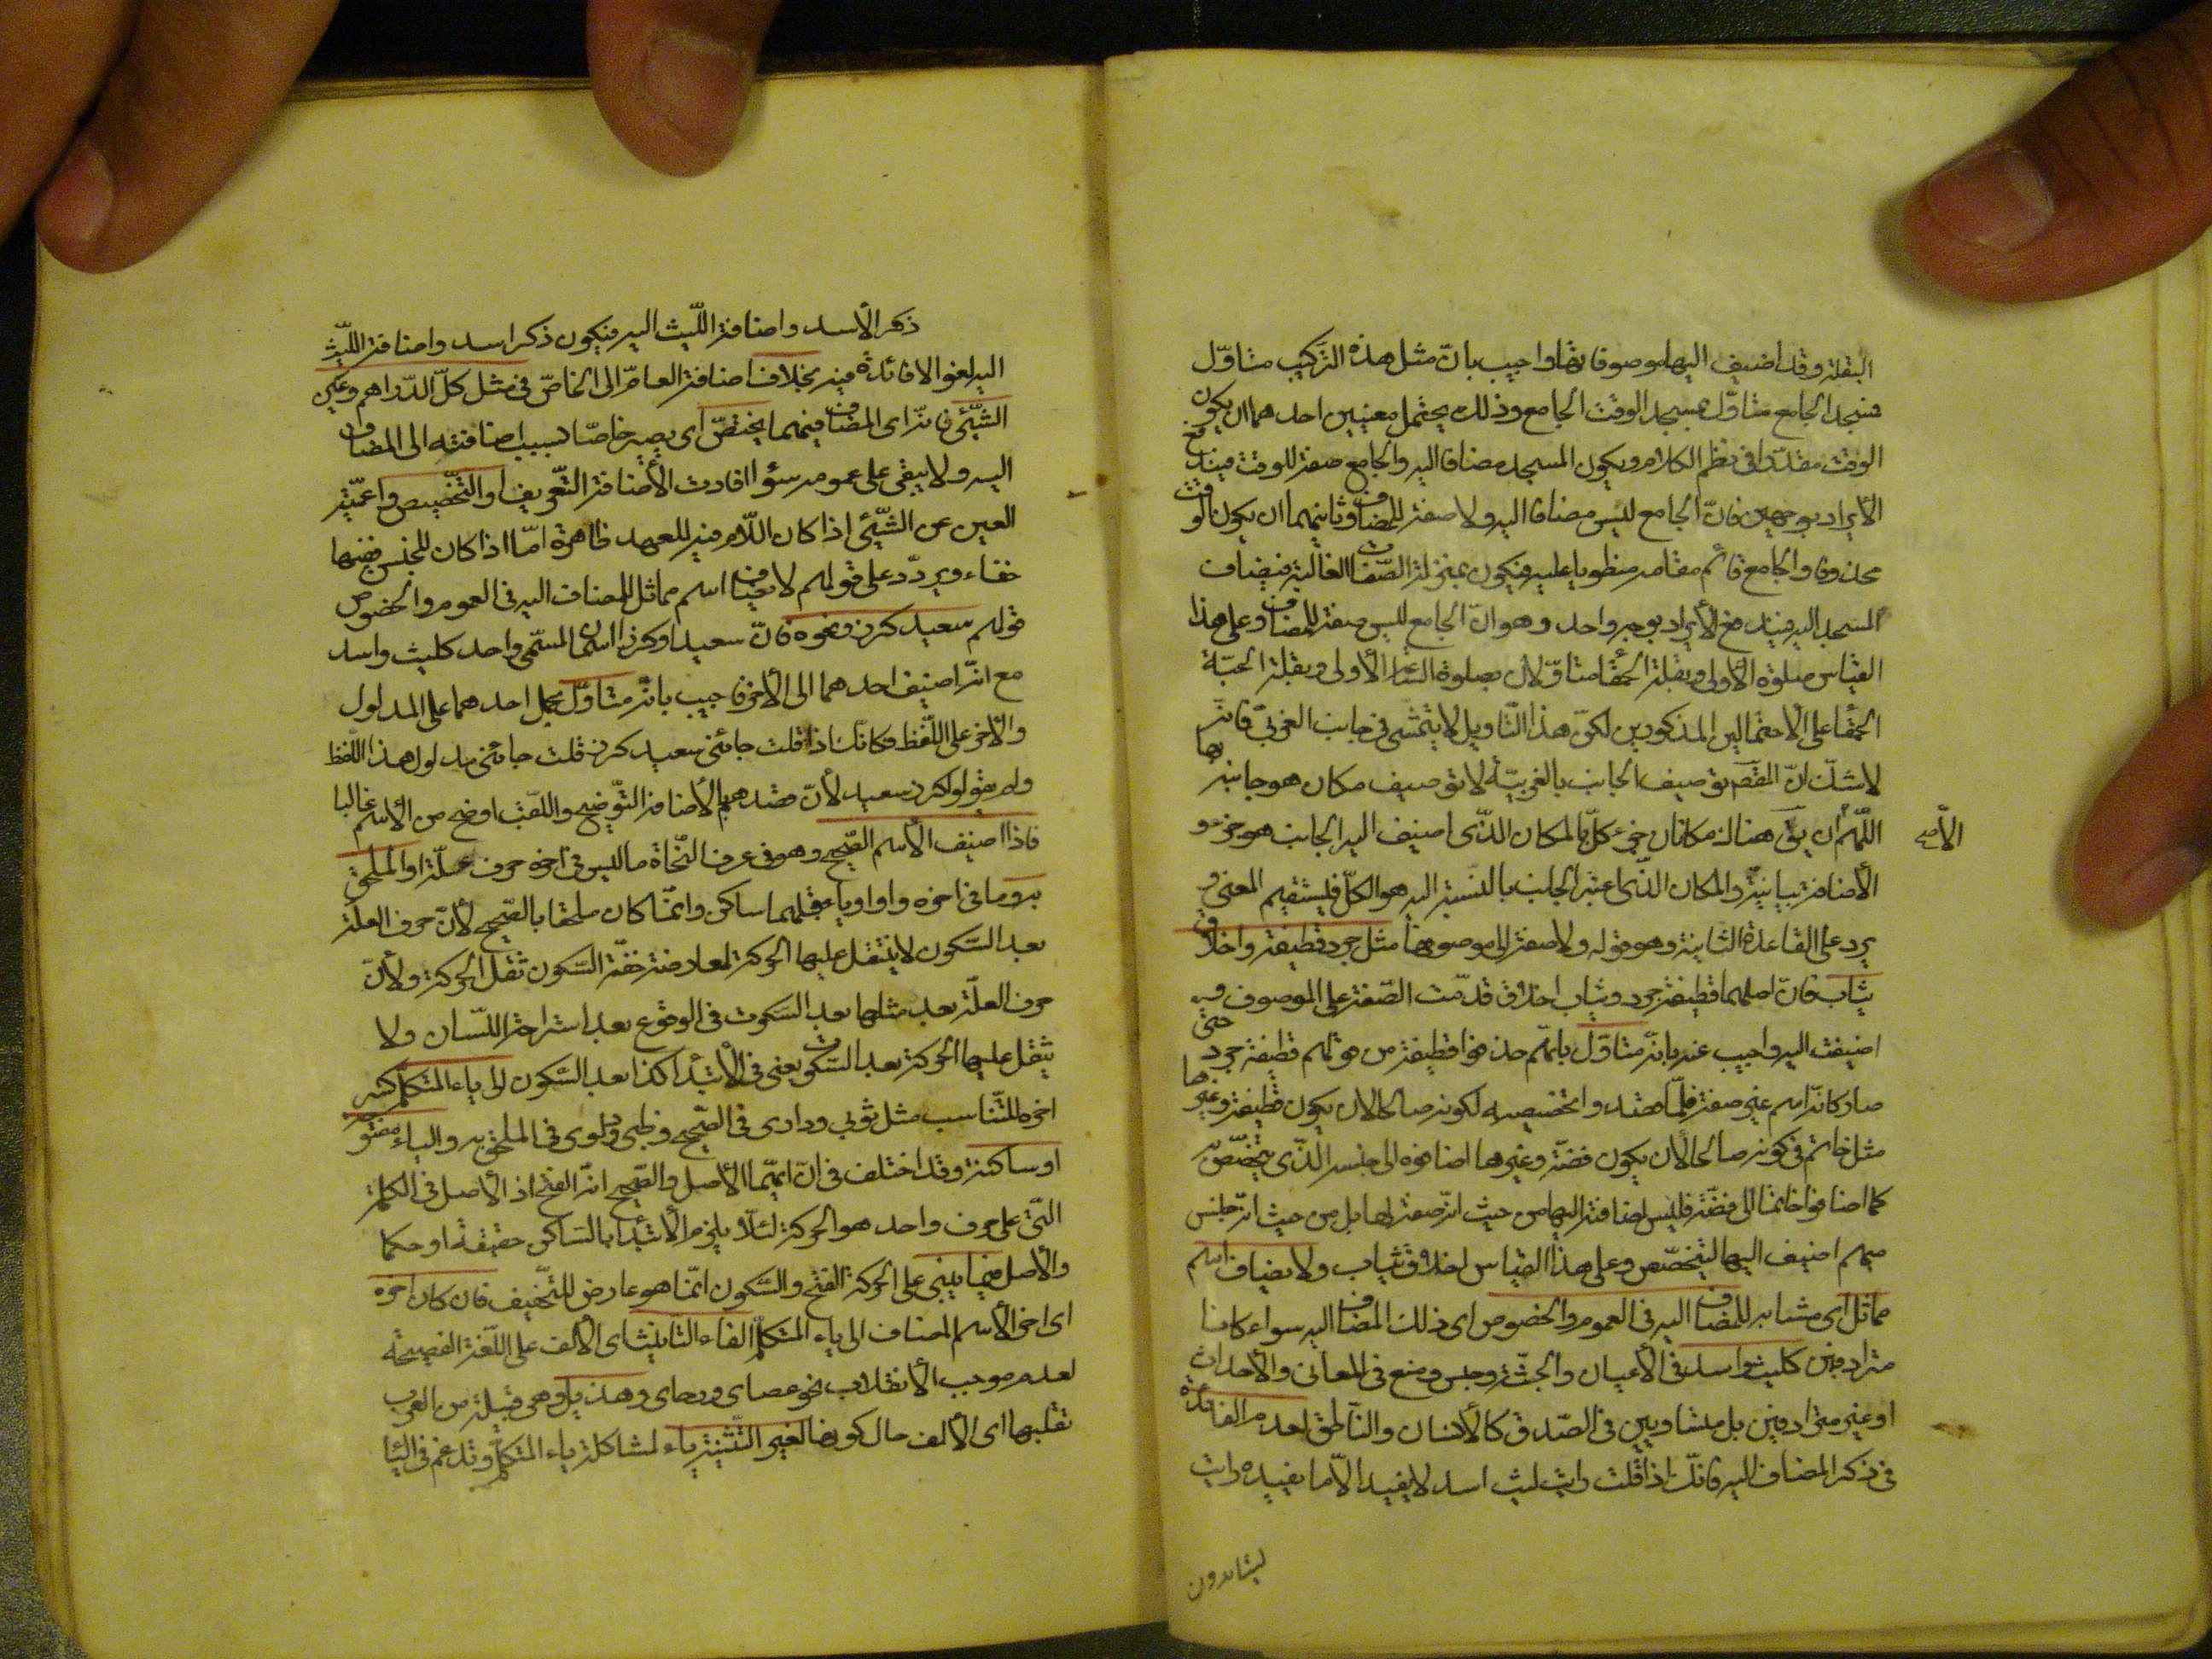 البقلة وقد اضيف اليها موصوفاتها واجيب بانّ مثل هذه التركيب متاوّل
فمسجد الجامع متاوّل بمسجد الوقت الجامع وذلك يحتمل معنيين احدهما ان يكون
الوقت مقدّرا فى نظم الكلام ويكون المسجد مضافا اليه والجامع صفة للوقت فيندفع
الأيراد بوجهين فانّ الجامع ليس مضافا اليه ولا صفة للمضاف وثانيهما ان يكون الوقت
محذوفا والجامع قائم مقامه منطويا عليه فيكون بمنزلة الصّفات الغالبة فيضاف
المسجد اليه فيندفع الأيراد بوجه واحد وهو انّ الجامع ليس صفة للمضاف وعلى هذا
القياس صلوة الأولى وبقلة الحمقا متاوّلان بصلوة الساعة الأولى وبقلة الحبّة
الحمقا على الأحتمالين المذكورين لكنّ هذا التّاويل لا يتمشّى فى جانب الغربىّ فانّه
لا شكّ انّ المقصّ توصيف الجانب بالغربيّة لا توصيف مكان هو جانبها
اللّهمّ الّا ان يقّ هناك مكانان جزء وكلّ فالمكان الذّى اضيف اليه الجانب هو جزء و
الأضافة بيانيّة والمكان الذّى اعتبر الجانب بالنسبة اليه هو الكلّ فيستقيم المعنى و
يرد على القاعدة الثانية وهو قوله ولا صفة الى موصوفها مثل جرد قطيفة واخلاق
ثياب فانّ اصلهما قطيفة جرد وثياب اخلاق قدّمت الصّفة على الموصوف و
اضيفت اليه واجيب عنه بانّه متاوّل بانّهم حذفوا قطيفة من قولهم قطيفة جرد حتى
صار كانّه اسم غير صفة فلمّا قصدوا تخصيصه لكونه صالحا لان يكون قطيفة وغيرها
مثل خاتم فى كونه صالحا لأن يكون فضّة وغيرها اضافوه الى جنسه الذّى يتخصّص به
كما اضافوا خاتما الى فضّة فليس اضافته اليها من حيث انّه صفة لها بل من حيث انّه جنس
مبهم اضيف اليها ليتخصّص وعلى هذا القياس اخلاق ثياب ولا يضاف اسم
مماثل اى مشابه للمضاف اليه فى العموم والخصوص اى ذلك المضاف اليه سواء كانا
مترادفين كليث واسد فى الأعيان والجثّة وحبس ومنع فى المعانى والأحداث
او غير مترادفين بل متساويين فى الصّدق كالأنسان والنّاطق لعدم الفائدة
فى ذكر المضاف اليه فانّك اذا قلت رايت ليث اسد لا يفيد الّا ما يفيده رايت
ليثا بدون
ذكر الأسد واضافة اللّيث اليه فيكون ذكر اسد واضافة اللّيث
اليه لغوا لا فائدة فيه بخلاف اضافة العامّ الى الخاصّ فى مثل كلّ الدّراهم وعين
الشّيئى فانّه اى المضاف فيهما يختصّ اى يصير خاصّا بسبب اضافته الى المضاف
اليه ولا يبقى على عمومه سؤا افادت الأضافة التّعريف او التّخصيص واعمّيّة
العين عن الشّيئى اذا كان اللّام فيه للعهد ظاهرة امّا اذا كان للجنس ففيها
خفاء ويردّد على قولهم لا يضاف اسم مماثل للمضاف اليه فى العموم والخصوص
قولهم سعيد كرز ونحوه فانّ سعيدا وكرزا اسمان لمسمّى واحد كليث واسد
مع انّه اضيف احدهما الى الأخر فاجيب بانّه متاوّل بحمل احدهما على المدلول
والأخر على اللّفظ فكانّك اذا قلت جائنى سعيد كرز قلت جائنى مدلول هذا اللّفظ
ولم يقولوا كرز سعيد لأنّ قصدهم بالأضافة التّوضيح واللّقب اوضح من الأسم غالبا
فاذا اضيف الأسم الصّحيح وهو فى عرف النّحاة ما ليس فى اخره حرف علّة او الملحق
به وما فى اخره واو او ياء قبلهما ساكن وانّما كان ملحقا بالصّحيح لأنّ حرف العلّة
بعد السّكون لا يثقل عليها الحركة لمعارضة خفّة السّكون ثقل الحركة ولأنّ
حرف العلّة بعد مثلها بعد السّكوت فى الوقوع بعد استراحة اللّسان ولا
يثقل عليها الحركة بعد السّكوت يعنى فى الأبتدأ كذا بعد السّكون الى ياء المتكلّم كسر
اخره للتّناسب مثل ثوبى ودارى فى الصّحيح وظبى ودلوى فى الملحق به والياء مفتوحة
او ساكنة وقد اختلف فى انّ ايّهما الأصل والصّحيح انّه الفتح اذ الأصل فى الكلمة
التّى على حرف واحد هو الحركة لئلّا يلزم الأبتدأ بالسّاكن حقيقة او حكما
والأصل فيما يبنى على الحركة الفتح والسّكون انّما هو عارض للتّخفيف فان كان اخره
اى اخر الأسم المضاف الى ياء المتكلّم الفا التا يثبت اى الألف على اللّغة الفصيحة
لعدم موجب الأنقلاب نحو عصاى ورحاى وهذيل وهى قبيلة من العرب
تقلبها اى الألف حال كونها لغير التّثنية ياء لمشاكلة ياء المتكلّم وتدغم فى اليا